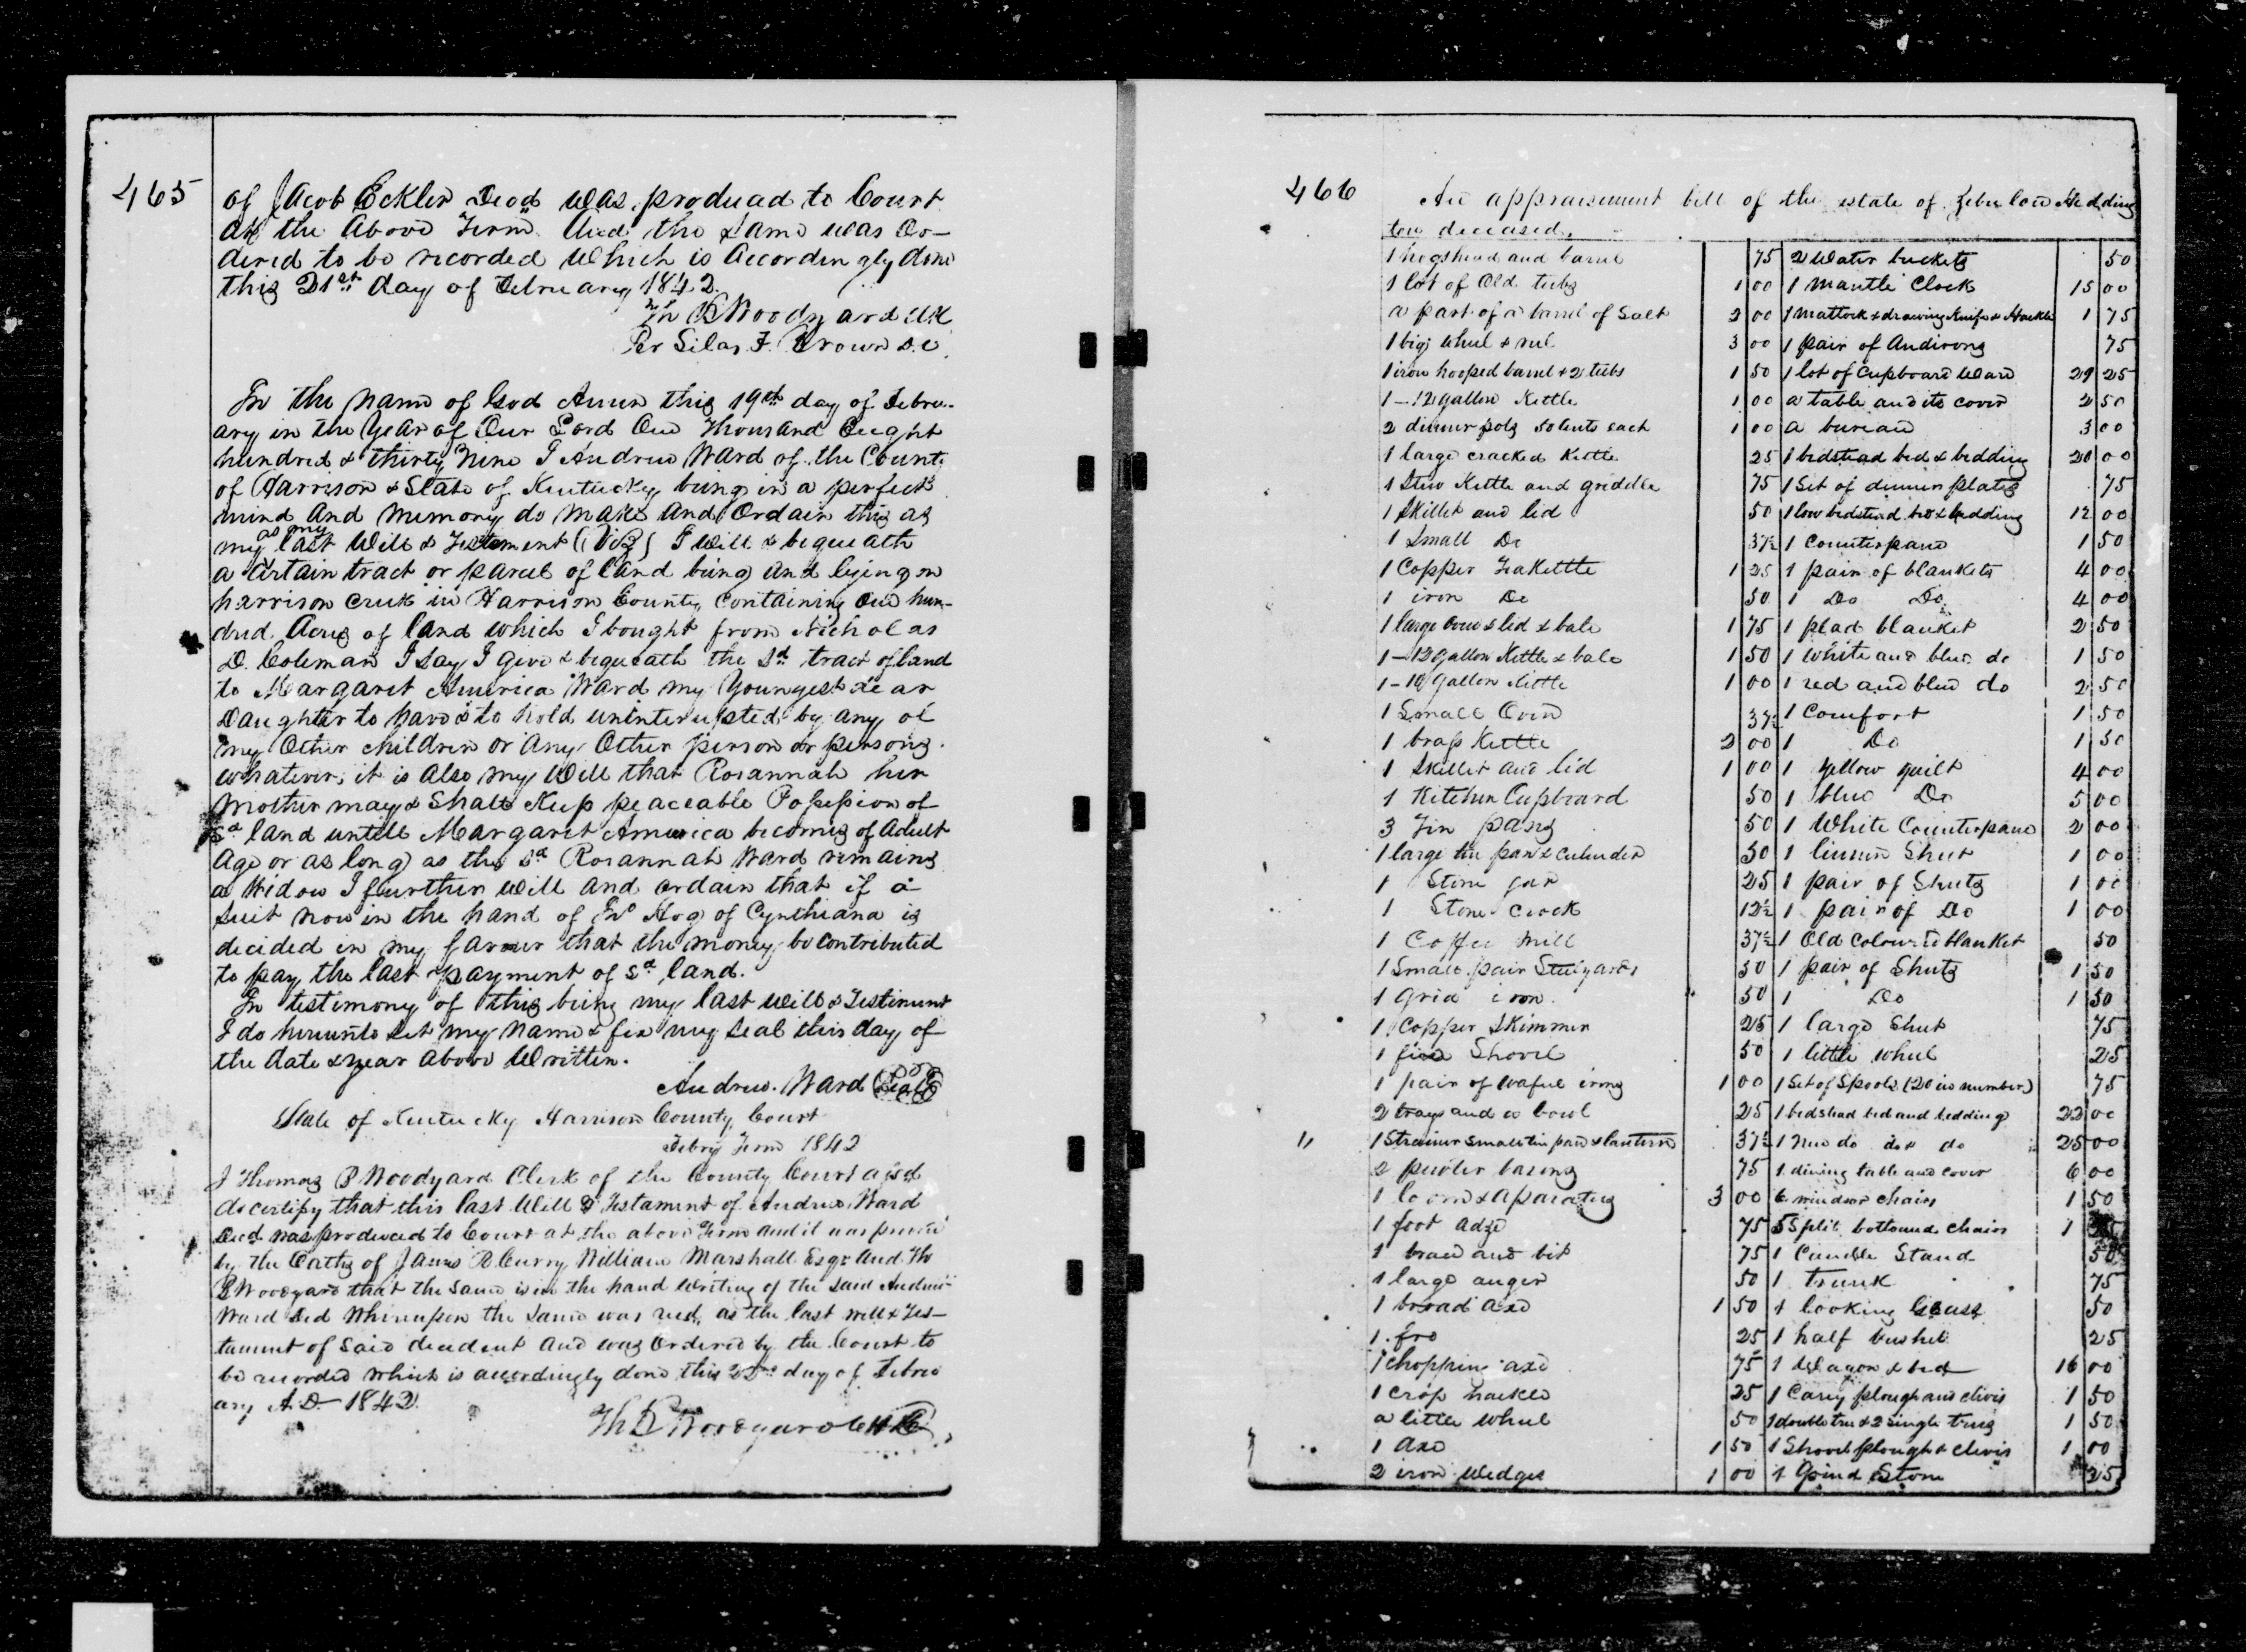 465
of Jacob Eckler Decd was produced to Court
at the Above Term And the same was Or-
dered to be recorded Which is Accordingly done
this 21st day of February 1842.
Th B Woodyard Clk
Per Silas F. Brown D.C.
In the name of God Amen this 19th day of Febru-
ary in the year of Our Lord One Thousand Eight
hundred & thirty Nine I Andrew Ward of the County
of Harrison & State of Kentucky being in a perfect
mind And Memory do Make And Ordain this as
as my
my last Will & Testement (Viz) I will & bequeath
a Certain tract or parcel of land being and lying on
harrison creek in Harrison County Containing One hun-
dred Acres of land which I bought from Nicholas
D. Coleman I say I give & bequeath the sd tract of land
to Margaret America Ward my Youngest dear
Daughter to have & to hold uninterupted by any of
my Other children or any Other person or persons
whatever, it is Also my Will that Rosannah her
Mother may & Shall Keep peaceable Possession of
sd land untill Margaret America becomes of Adult
Age or as long as the sd Rosannah Ward remains
a Widow I further will and ordain that if a
suit now in the hand of Jno Hog of Cynthiana is
decided in my favour that the money be contributed
to pay the last payment of sd land.
In testimony of this being my last will & Testiment
I do hereunto set my name & fix my seal this day of
the date & year above Written.
Andrew Ward Seal
State of Kentucky Harrison County Court
Febry Term 1842
I Thomas B Woodyard Clerk of the County Court afsd
do certify that this last Will & Testament of Andrew Ward
Decd was produced to Court at the above Term and it was proven
by the Oaths of James R Curry William Marshall Esqr And Th
B Woodyard that the same is in the hand writing of the said Andrew
Ward Decd Whereupon the same was recd as the last will & Tes-
tament of said decedent and was Ordered by the Court to
be recorded which is accordingly done this 22nd day of Febru
ary A.D. 1842
Th B Woodyard Clk
466
An appraisement bill of the estate of Zebulon Hedding
ton deceased.
1 hogshead and barrel 75
1 lot of Old tubs 1 00
a part of a barrel of Salt 2 00
1 big wheel & reel 3 00
1 iron hooped barrel & 2 tubs 1 50
1-12 gallon Kettle 1 00
2 dinner pots 50 cents each 1 00
1 large cracked Kettle 25
1 Stew Kettle and griddle 75
1 Skillet and lid 50
1 Small Do 37½
1 Copper Teakettle 1 25
1 iron Do 50
1 large Oven & lid & bale 1 75
1-12 gallon Kettle & bale 1 50
1-10 gallon Kettle 1 00
1 Small Oven 37½
1 brass Kettle 2 00
1 Skillet and lid 1 00
1 Kitchen Cupboard 50
3 Tin pans 50
1 large tin pan & culender 50
1 Stone jar 25
1 Stone crock 12½
1 Coffee Mill 37½
1 Small pair Stilyards 50
1 Grid iron 50
1 Copper Skimmer 25
1 fire Shovel 50
1 pair of waful irons 1 00
2 trays and a bowl 25
1 Strainer small tin pan & lantern 37½
2 pewter basins 75
1 loom & aparatus 3 00
1 foot adze 75
1 brace and bit 75
1 large auger 50
1 broad axe 1 50
1 fro 25
1 chopping axe 75
1 crop hackle 25
a little wheel 50
1 axe 1 50
2 iron wedges 1 00
2 Water buckets 50
1 mantle Clock 15 00
1 mattock & drawing knife & Hackle 1 75
1 pair of Andirons 75
1 lot of Cupboard Ware 29 25
a table and its cover 2 50
a bureau 3 00
1 bedstead bed & bedding 20 00
1 Set of dinner plates 75
1 low bedstead bed & bedding 12 00
1 Counterpane 1 50
1 pair of blankets 4 00
1 Do Do 4 00
1 plad blanket 2 50
1 white and blue do 1 50
1 red and blue do 2 50
1 Comfort 1 50
1 Do 1 50
1 yellow quilt 4 00
1 blue Do 5 00
1 White Counterpane 2 00
1 linnen Sheet 1 00
1 pair of Sheets 1 00
1 pair of Do 1 00
1 Old Coloured blanket 50
1 pair of Sheets 1 50
1 Do 1 50
1 large Sheet 75
1 little wheel 25
1 Set of Spools (20 in number) 75
1 bedstead bed and bedding 22 00
1 New do do & do 25 00
1 dining table and cover 6 00
6 windsor chairs 1 50
5 Split bottomed chairs 1
1 Candle Stand 50
1 trunk 75
1 looking Glass 50
1 half bushel 25
1 Wagon & bed 16 00
1 Cary plough and clivis 1 50
1 double tree & 2 single trees 1 50
1 Shovel plough & clivis 1 00
1 Grind Stone 25